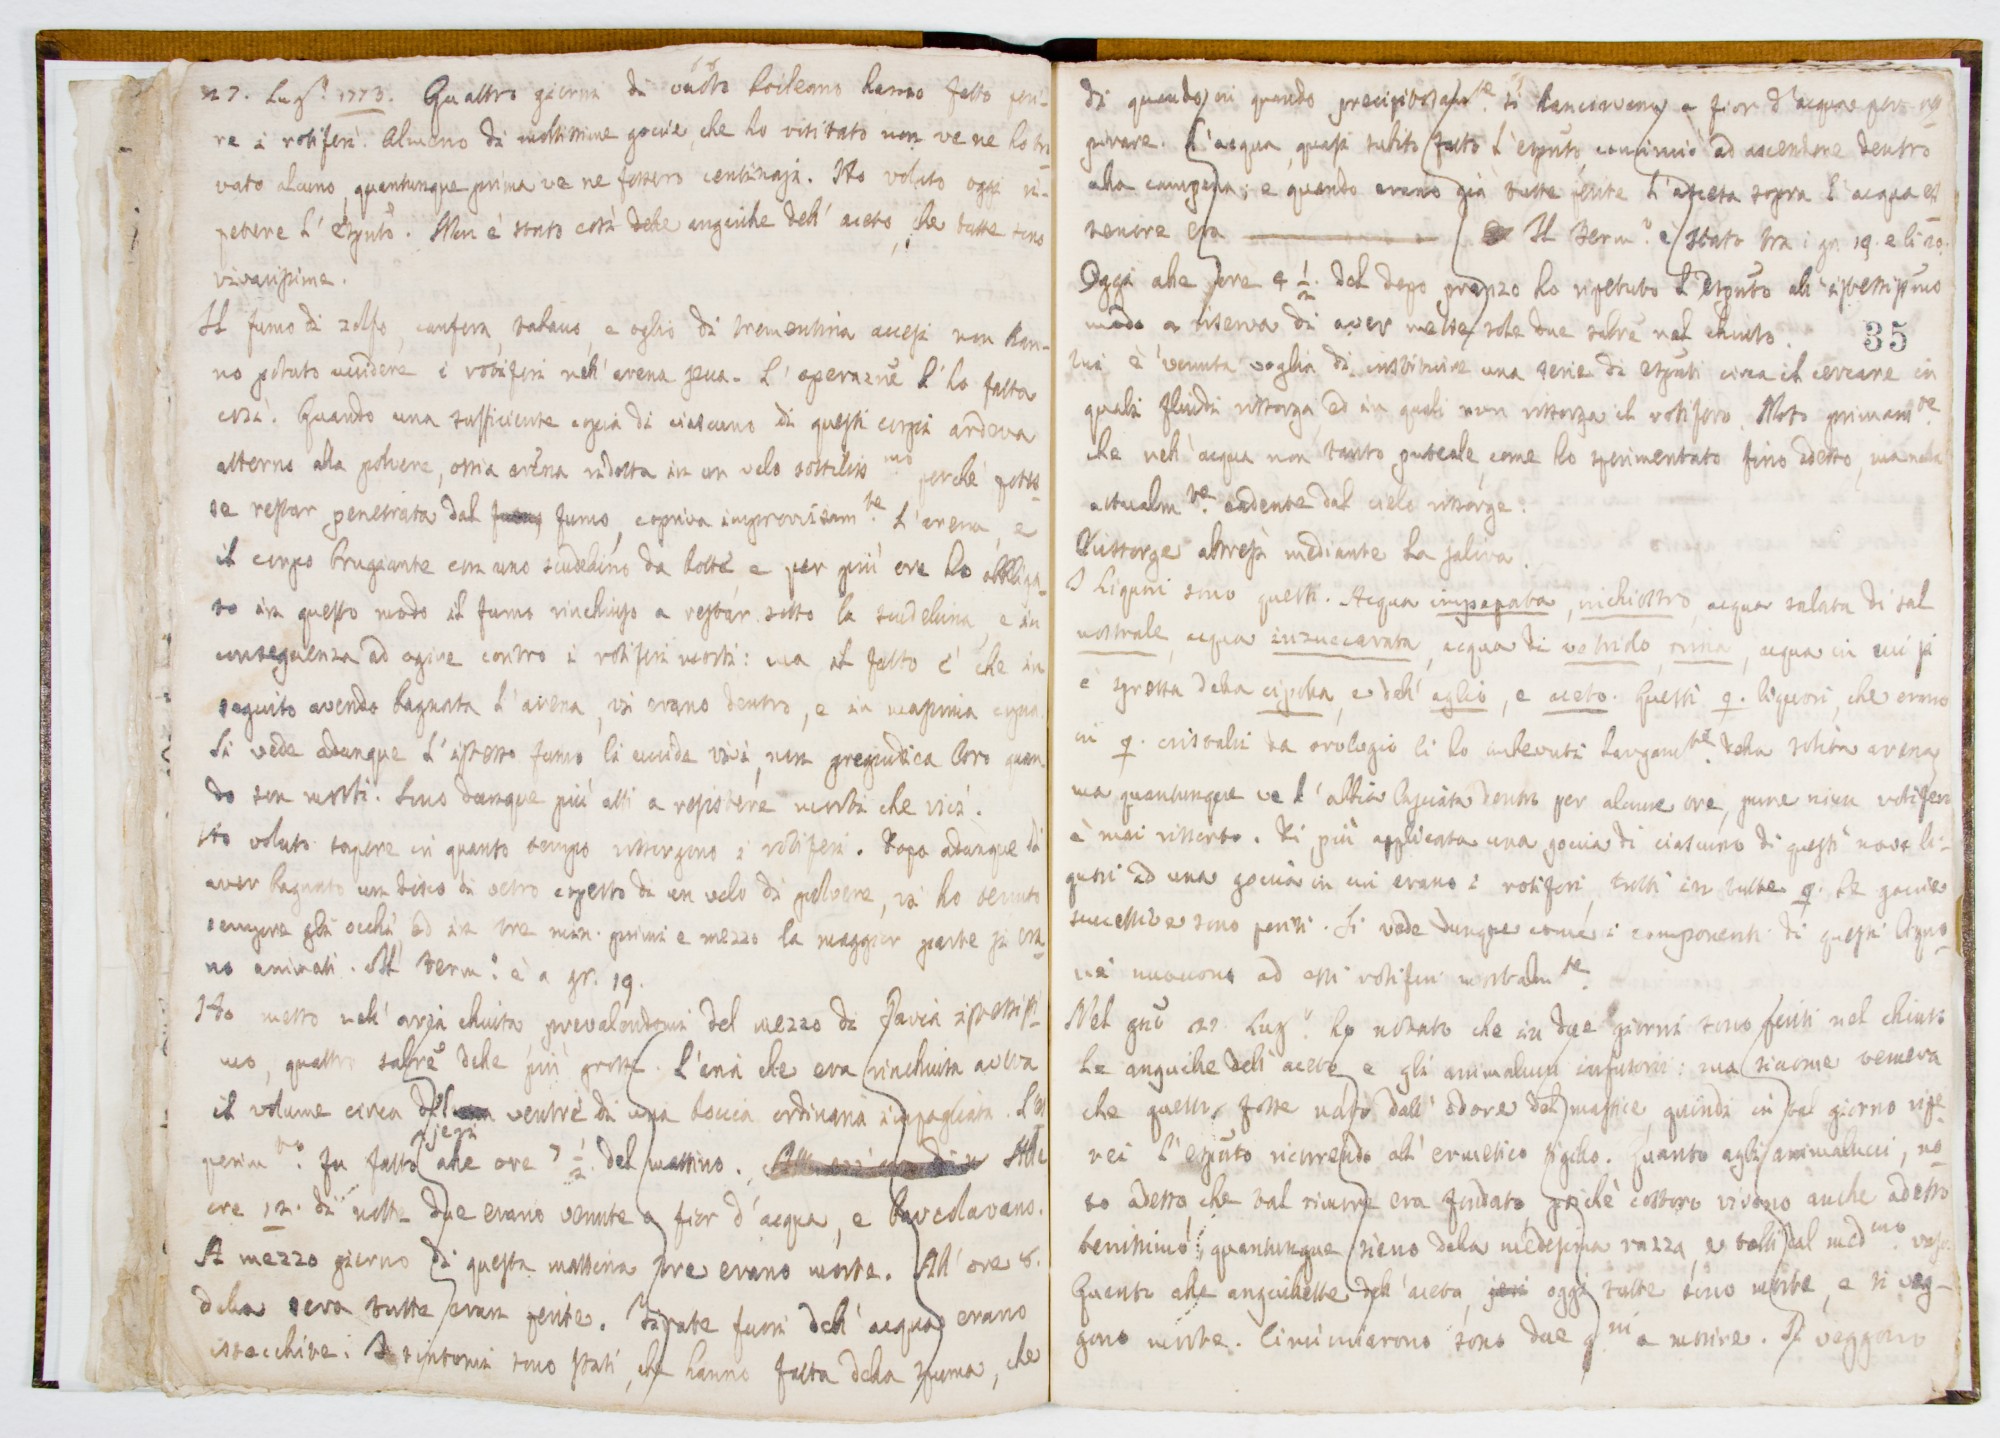 27. Lugo. 1773. Quattro giorni di vuoto boileano hanno fatto peri-
re i rotiferi. Almeno di moltissime goccie, che ho visitato non ve ne ho tro
vato alcuno, quantunque prima ve ne fossero centinaja. Ho voluto oggi ri-
petere l' esputo. Non è stato così delle anguille dell' aceto, che tutte sono
vivacissime.
Il fumo di zolfo, canfora, tabacco, e oglio di trementina accesi non han-
no potuto uccidere i rotiferi nell' arena secca. L' operazne l' ho fatta
così. Quando una sufficiente copia di ciascuno di questi corpi ardeva
attorno alla polvere, ossia arena ridotta in un velo sottiliss mo perché potes
se restar penetrata dal fumo, copriva improvvisam te. l' arena, e
il corpo brugiante con uno scudelino da botte e per più ore ho obbliga
to in questo modo il fumo rinchiuso a restar sotto la scudelina, e in
conseguenza ad agire contro i rotiferi morti: ma il fatto è che in
seguito avendo bagnata l' arena, vi erano dentro, e in massima copia.
Si vede adunque l' istesso fumo li uccide vivi, non pregiudica loro quan
do son morti. Sono dunque più atti a resistere morti che vivi.
Ho voluto sapere in quanto tempo risorgono i rotiferi. Dopo adunque di
aver bagnato un disco di vetro coperto di un velo di polvere, vi ho tenuto
sempre gli occhi ed in tre min. primi e mezzo la maggior parte si era
no animati. Il term.o è a gr. 19.
Ho messo nell' aria chiusa, prevalendomi del mezzo di Pavia istessissi
mo, quattro salre delle più grosse. L' aria che era rinchiusa aveva
il volume circa del ventre di una boccia ordinaria impagliata. L' es
perim to. fu fatto jeri alle ore 7 1/2 del mattino. Alle
ore 12. di notte due erano venute a fior d' acqua, e boccolavano.
A mezzo giorno di questa mattina tre erano morte. All' ore 8.
della sera tutte eran perite. Tirate fuori dell' acqua erano
istecchite. I sintomi sono stati, che hanno fatta della spuma, che
di quando in quando precipitosam te. si lanciavano a fior d' acqua per res
pirare. L' acqua, quasi subito fatto l' esputo, cominciò ad ascendere dentro
alla campana; e quando erano già tutte perite l' ascesa sopra l' acqua es
teriore era ———— Il term.o è stato tra i gr. 19. e li 20.
Oggi alle ore 4 1/2. del dopo pranzo ho ripetuto l' esputo all' istessissimo
modo a riserva di aver messe sole due salre nel chiuso. 35
Mi è venuta voglia di instituire una serie di esputi circa il cercare in
quali fluidi risorga, ed in quali non risorga il rotifero. Noto primam te.
che nell' acqua non tanto puteale, come ho sperimentato fino adesso, ma nella
attualm te. cadente dal cielo risorge.
Risorge altresì mediante la saliva.
I liquori sono questi. Acqua impepata, inchiostro, acqua salata di sal
nostrale, acqua inzuccarata, acqua di vetriolo, orina, acqua in cui si
è spressa della cipolla, e dell' aglio, e aceto. Questi 9. liquori, che erano
in 9. cristalli da orologio li ho imbevuti largam te. della solita arena,
ma quantunque ve l' abbia lasciata dentro per alcune ore, pure niun rotifero
è mai risorto. Di più applicata una goccia di ciascuno di questi nove li-
quori ad una goccia in cui erano i rotiferi, tutti in tutte 9. le goccie
successive sono periti. Si vede dunque come i componenti di questi liquo
ri nuocono ad essi rotiferi mortalm te.
Nel gno 22. Lugo. ho notato che in due giorni sono periti nel chiuso
le anguille dell' aceto e gli animalucci infusorii: ma siccome temeva
che questo fosse nato dall' odore del mastice, quindi in tal giorno ripe
tei l' esputo ricorrendo all' ermetico sigillo. Quanto agli animalucci, no
to adesso che tal timore era fondato, poiché costoro vivono anche adesso
benissimo, quantunque sieno della medesima razza, e tolti dal med mo. vaso.
Quanto alle anguillette dell' aceto, jeri oggi tutte sono morte, e si veg-
gono morte. Cominciarono sono due g ni a morire. Si veggono